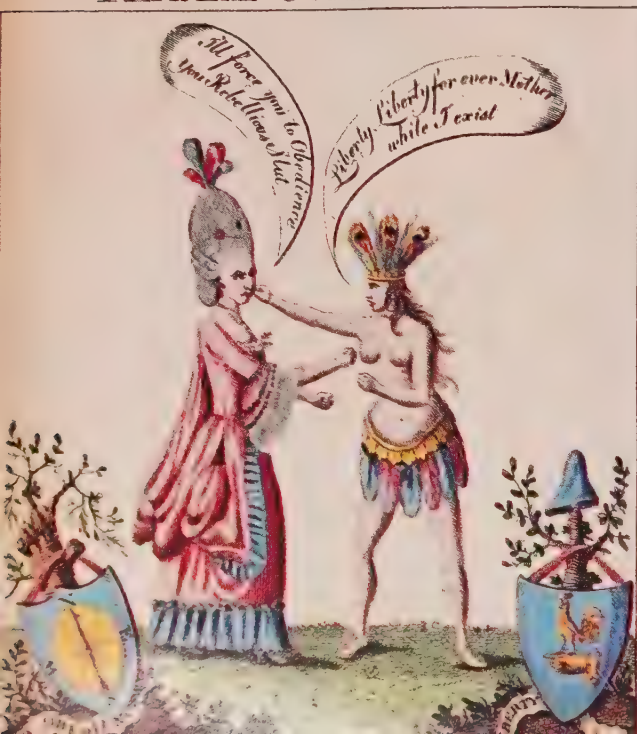 I'll force you to Obedience
you Rebellious Slut
Liberty, Liberty for ever Mother
while I exist
BERTY